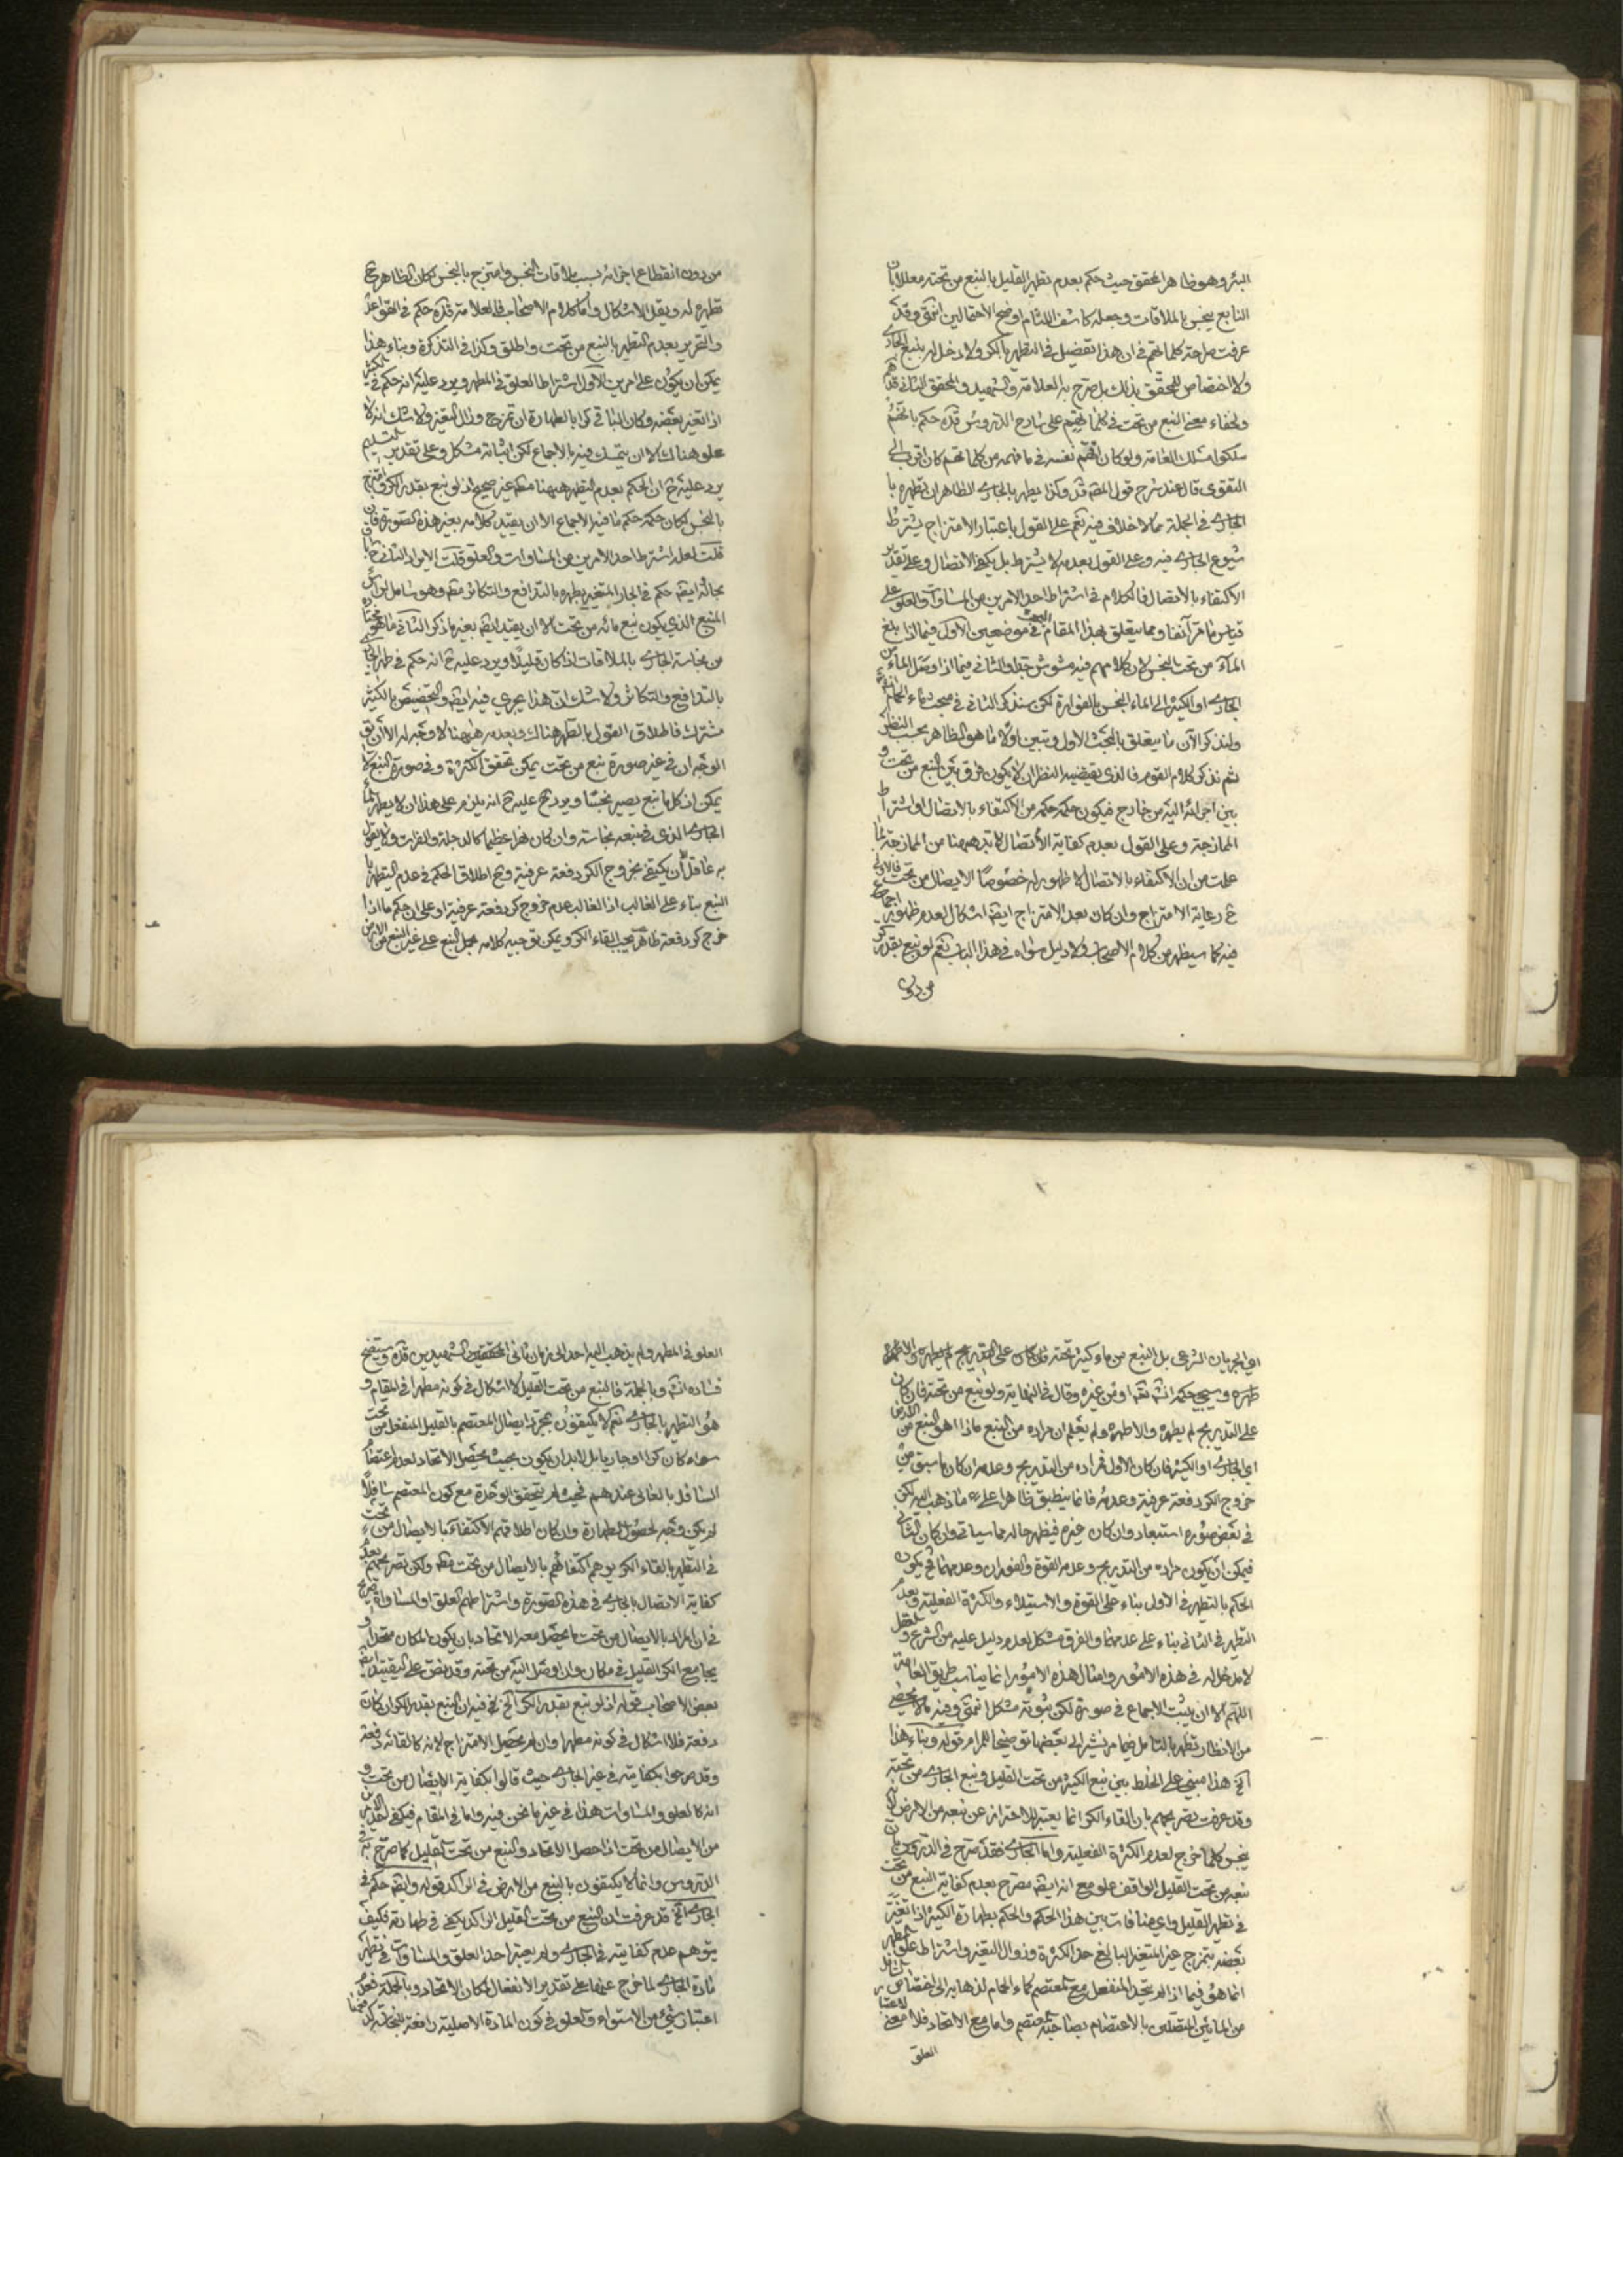 البئر وهو ظاهر المحقق حيث حكم بعدم تطهر القليل بالنبع من تحته معللا بان
النابع ينجس بالملاقات وجعله كاشف اللثام اوضح الاحتمالين انتهى وقد
عرفت صراحة كلماتهم في ان هذا تفصيل في التطهر بالكر ولا دخل له بنبع الجاري
ولا اختصاص للمحقق بذلك بل صرح به العلامة والشهيد والمحقق الثاني قدهم
ولخفاء معنى النبع من تحت في كلماتهم على شارح الدروس قده حكم بانهم
سلكوا مسلك العامة ولو كان اتهم نفسه في ما فهمه من كلماتهم كان اقرب الى
التقوى قال عند شرح قول المصنف قده وكذا يطهر بالجاري الظاهر ان تطهره با
الجاري في الجملة مما لا خلاف فيه نعم على القول باعتبار الامتزاج يشترط
شيوع الجاري فيه وعلى القول بعدمه لا يشترط بل يكفي الاتصال وعلى تقدير
الاكتفاء بالاتصال فالكلام في اشتراط احد الامرين من المساوات والعلو على
قياس ما مر آنفا ومما يتعلق بهذا المقام البحث في موضعين الاول فيما اذا نبع
الماء من تحت النجس لان كلامهم فيه مشوش جدا والثاني فيما اذا وصل الماء من
الجاري او الكثير الى الماء النجس بالفوارة لكن سنذكر الثاني في مبحث ماء الحمام
ولنذكر الآن ما يتعلق بالبحث الاول ونبين اولا ما هو الظاهر بحسب النظر
ثم نذكر كلام القوم فالذي يقتضيه النظر ان لا يكون فرق بين النبع من تحت و
بين اجرائه اليه من خارج فيكون حكمه حكمه من الاكتفاء بالاتصال او اشتراط
الممازجة وعلى القول بعدم كفاية الاتصال لا بد ههنا من الممازجة لما
علمت من ان الاكتفاء بالاتصال لا ظهور له خصوصا الاتصال من تحت فالاولى
ح رعاية الامتزاج وان كان بعد الامتزاج ايضا اشكال لعدم ظهور اجماع
فيه كما سيظهر من كلام الاصحاب ولا دليل سواه في هذا الباب نعم لو نبع بقدر كر
من دون
من دون انقطاع اجزائه بسبب ملاقات النجس وامتزج بالنجس لكان الظاهر ح
تطهره له ويقل الاشكال واما كلام الاصحاب فالعلامة قده حكم في القواعد
والتحرير بعدم التطهر بالنبع من تحت واطلق وكذا في التذكرة وبناء هذا
يمكن ان يكون على امرين الاول اشتراط العلو في المطهر ويرد عليه انه حكم في الكثير
اذا تغير بعضه وكان الباقي كرا بالطهارة ان تمزج وزال التغير ولا شك انه لا
علو هناك الا ان يتمسك فيه بالاجماع لكن اثباته مشكل وعلى تقدير التسليم
يرد عليه ح ان الحكم بعدم التطهر ههنا مطلقا غير صحيح اذ لو نبع بقدر الكر وامتزج
بالنجس لكان حكمه حكم ما فيه الاجماع الا ان يقيد كلامه بغير هذه الصورة فان
قلت لعله اشترط احد الامرين من المساوات والعلو قلت الايراد الثاني ح با
بحاله ايضا حكم في الجاري المتغير بطهره بالتدافع والتكاثر مطلقا وهو شامل لراس
المنبع الذي يكون نبع مائه من تحت الا ان يقيد ايضا بغير ما ذكر الثاني ما هو مختاره
من نجاسة الجاري بالملاقات اذا كان قليلا ويرد عليه ح انه حكم في طهر الجاري
بالتدافع والتكاثر ولا شك ان هذا يجري فيه ايضا والتخصيص بالكثير
مشترك فاطلاق القول بالتطهر هناك وبعدمه ههنا لا وجه له الا ان يق
الوجه ان في غير صورة نبع من تحت يمكن تحقق الكثرة وفي صورة النبع لا
يمكن اذ كل ما نبع يصير نجسا ويرد ح عليه انه يلزم على هذا ان لا يطهر ماء
الجاري الذي في منبعه نجاسة وان كان نهرا عظيما كالدجلة والفرات ولا يقول
به عاقل الا ان يكتفي بخروج الكر دفعة عرفية وح اطلاق الحكم في عدم التطهر با
النبع بناء على الغالب اذ الغالب عدم خروج كر دفعة عرفية او على ان حكم ما اذا
خرج كر دفعة ظاهر بحسب القاء الكر ويمكن توجيه كلامه بحمل النبع على غير النبع من الارض
اي الجريان الشرعي بل النبع من ماء كثير تحته فان كان على التدريج لم يطهره والا طهره
طهره وسيجيء حكمه انشاءالله او من غيره وقال في النهاية ولو نبع من تحته فان كان
على التدريج لم يطهره والا طهره ولم يعلم ان مراده من النبع ماذا اهو النبع من الارض
اي الجاري او الكثير فان كان الاول فمراده من التدريج وعدمه ان كان ما سبق من
خروج الكر دفعة عرفية وعدمه فانما ينطبق ظاهرا على ما ذهب اليه لكن
في بعض صوره استبعاد وان كان غيره فيظهر حاله مما سياتي وان كان الثاني
فيمكن ان يكون مراده من التدريج وعدمه القوة والفوران وعدمهما فح يكون
الحكم بالتطهر في الاول بناء على القوة والاستيلاء والكثرة الفعلية وبعدم
التطهر في الثاني بناء على عدمهما والفرق مشكل لعدم دليل عليه من الشرع والعقل
لا مدخل له في هذه الامور وامثال هذه الامور انما يناسب طريق العامة
اللهم الا ان يثبت الاجماع في صورة لكن ثبوته مشكل انتهى وفيه ما لا يخفى
من الانظار تظهر بالتامل فيما مر نشير الى بعضها توضيحا للمرام قوله وبناء هذا
آخ هذا مبني على الخلط بين نبع الكثير من تحت القليل ونبع الجاري من تحته
وقد عرفت تصريحهم بان القاء الكر انما يعتبر للاحتراز عن نبعه من الارض لانه
ينجس كلما خرج لعدم الكثرة الفعلية واما الجاري فقد صرح في الدروس بان
نبعه من تحت القليل الواقف علو مع انه ايضا مصرح بعدم كفاية النبع من تحت
في تطهر القليل واي منافات بين هذا الحكم والحكم بطهارة الكثير اذا تغير
بعضه بتمزج غير المتغير البالغ حد الكثرة وزوال التغير واشتراط علو المطهر
انما هو فيما اذا لم يتحد المنفعل مع المعتصم كماء الحمام لذهابه الى اختصاص
من المائين المتصلين بالاعتصام بصاحبه المعتصم واما مع الاتحاد فلا معنى لاعتبار
العلو
العلو في المطهر ولم يذهب اليه احد الى زمان ثاني المحققين والشهيدين قده وسيتضح
فساده انشاءالله وبالجملة فالنبع من تحت القليل لا اشكال في كونه مطهرا في المقام و
هو التطهر بالجاري نعم لا يكتفون بمجرد اتصال المعتصم بالقليل المنفعل من تحت
سواء كان كرا او جاريا بل لابد ان يكون بحيث يحصل الاتحاد لعدم اعتصام
السافل بالعالي عندهم فحيث لم يتحقق الوحدة مع كون المعتصم سافلا
لم يكن وجه لحصول الطهارة وان كان اطلاقهم الاكتفاء بالاتصال من تحت
في التطهر بالقاء الكر يوهم اكتفائهم بالاتصال من تحت مطلقا ولكن تصريحهم بعدم
كفاية الاتصال بالجاري في هذه الصورة واشتراطهم العلو او المساواة صريح
في ان المراد بالاتصال من تحت ما يحصل معه الاتحاد بان يكون المكان متحدا و
يجامع الكر القليل في مكان وان اوصل اليه من تحته وقد نص على التقييد ايضا
بعض الاصحاب قوله اذ لو نبع بقدر الكر الخ فيه ان النبع بقدر الكر ان كان
دفعة فلا اشكال في كونه مطهرا وان لم يحصل الامتزاج لانه كالقائه دفعة
وقد صرحوا بكفايته في غير الجاري حيث قالوا بكفاية الاتصال من تحت و
انه كالعلو والمساوات هذا في غير ما نحن فيه واما في المقام فيكفي
من الاتصال من تحت اذا حصل الاتحاد والنبع من تحت القليل كما صرح به في
الدروس وانما لا يكتفون بالنبع من الارض في الراكد قوله وايضا حكم في
الجاري آخ قد عرفت ان النبع من تحت القليل الراكد يكفي في طهارته فكيف
يتوهم عدم كفايته في الجاري ولم يعتبر احد العلو والمساوات في تطهر
مادة الجاري لما خرج عنها على تقدير الانفعال لمكان الاتحاد وبالجملة فعدم
اعتبار شيء من الاستواء والعلو في كون المادة الاصلية رافعة للنجاسة